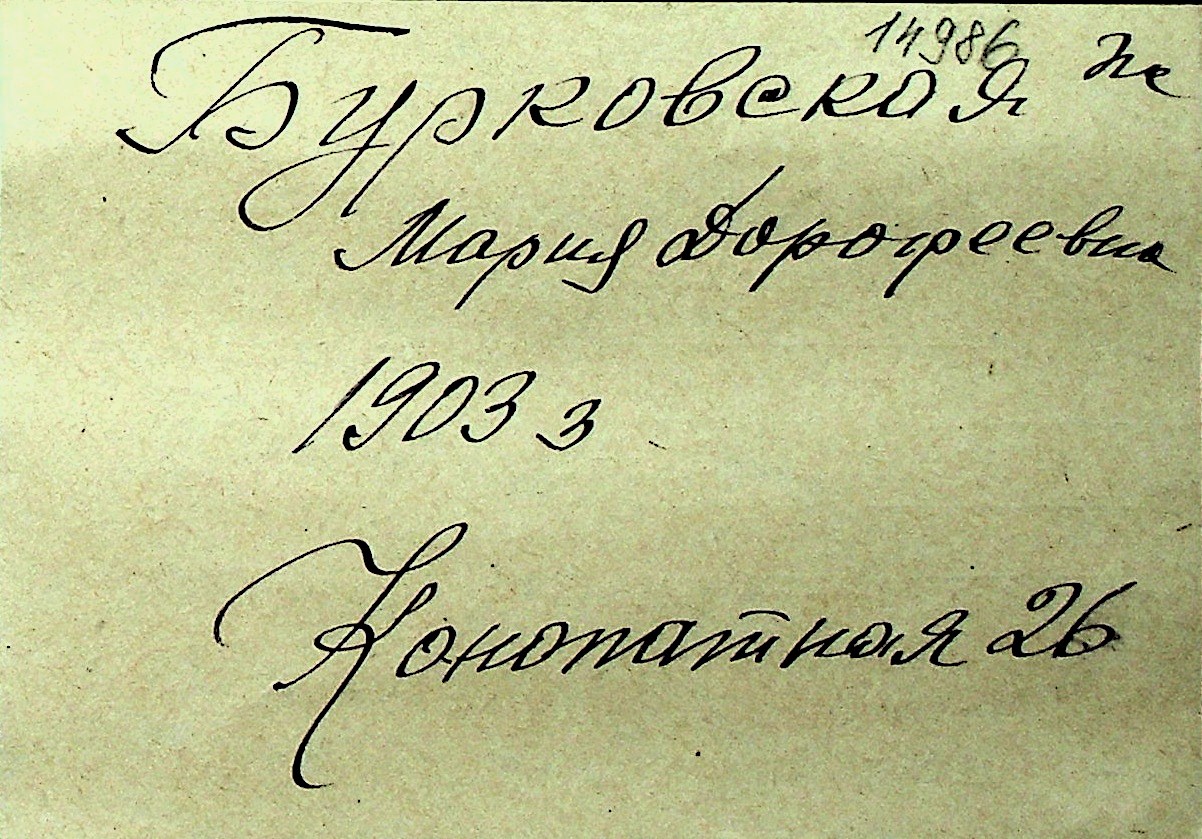 14986
Бурковская
Мария Дорофеевна
1903 г
Конопатная 26